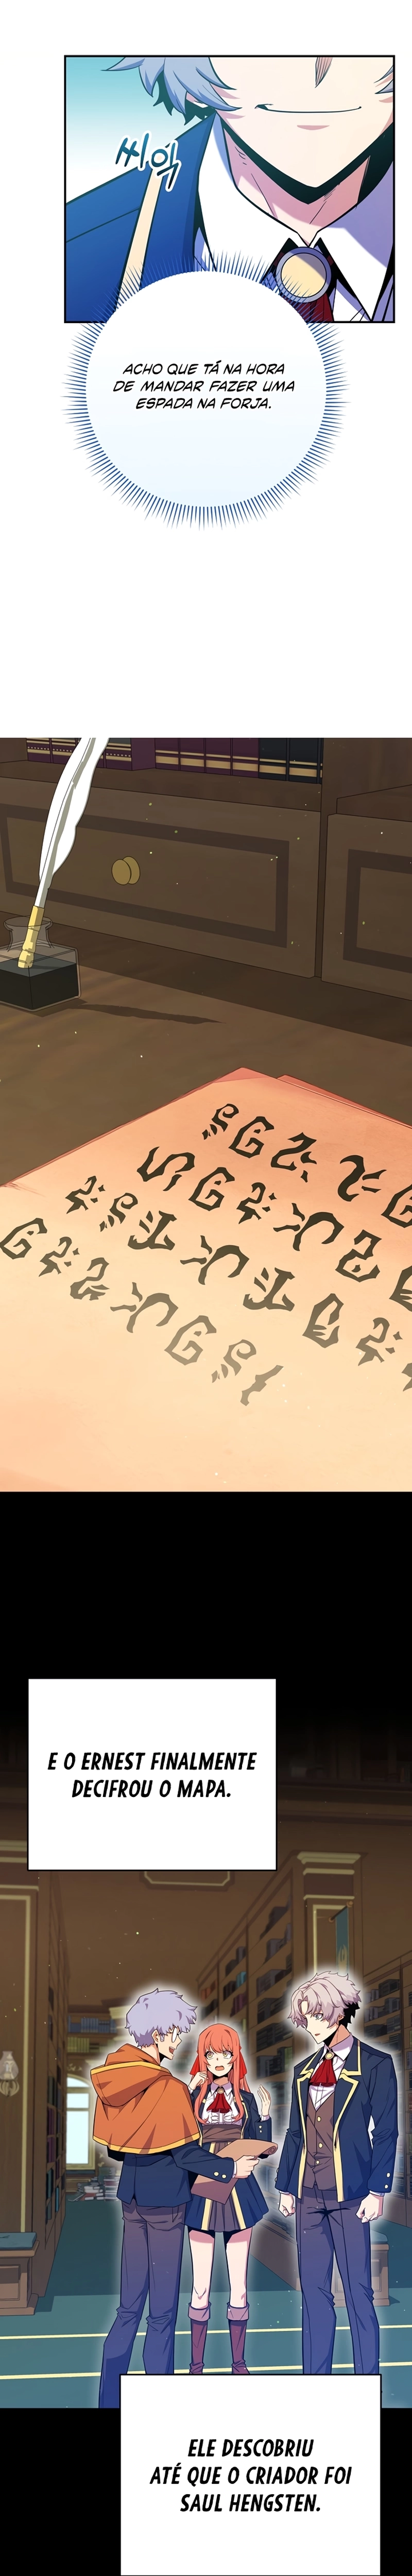 씨익
ACHO QUE TÁ NA HORA
DE MANDAR FAZER UMA
ESPADA NA FORJA.
E O ERNEST FINALMENTE
DECIFROU O MAPA.
ELE DESCOBRIU
ATÉ QUE O CRIADOR FOI
SAUL HENGSTEN.